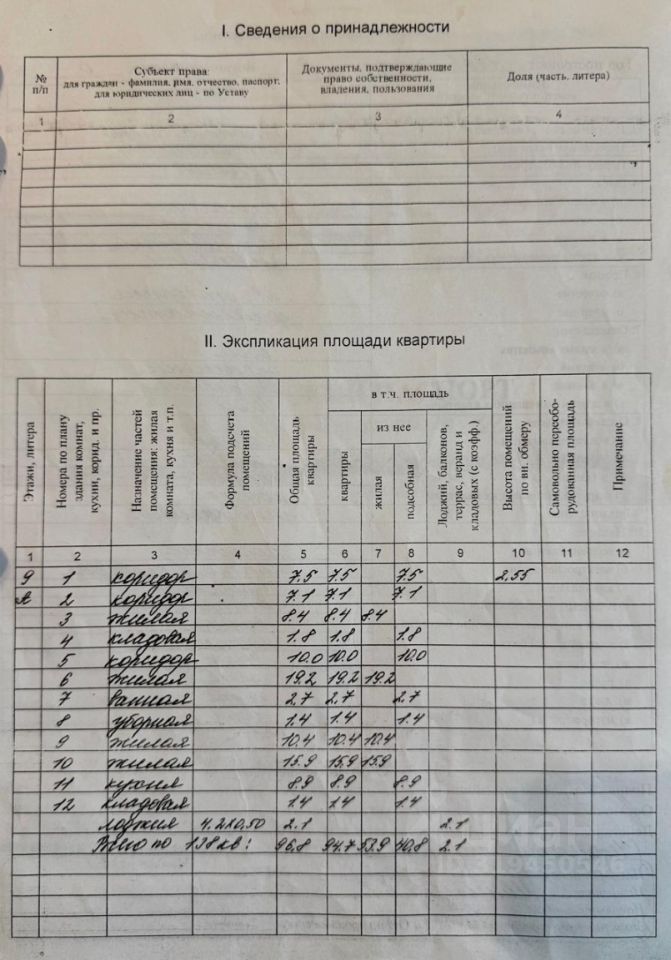 I. Сведения о принадлежности
№ п/п
Субъект права:
для граждан - фамилия, имя, отчество, паспорт;
для юридических лиц - по Уставу
Документы, подтверждающие
право собственности,
владения, пользования
Доля (часть, литера)
1 2 3 4
II. Экспликация площади квартиры
Этажи, литера
Номера по плану
здания комнат,
кухни, корид. и пр.
Назначение частей
помещения: жилая
комната, кухня и т.п.
Формула подсчета
помещений
Общая площадь
квартиры
в т.ч. площадь
квартиры
из нее
жилая
подсобная
Лоджий, балконов,
террас, веранд и
кладовых (с коэфф.)
Высота помещений
по вн. обмеру
Самовольно переобо-
рудованная площадь
Примечание
1 2 3 4 5 6 7 8 9 10 11 12
9 1 коридор 7.5 7.5 7.5 2.55
2 коридор 7.1 7.1 7.1
3 жилая 8.4 8.4 8.4
4 кладовая 1.8 1.8 1.8
5 коридор 10.0 10.0 10.0
6 жилая 19.2 19.2 19.2
7 ванная 2.7 2.7 2.7
8 уборная 1.4 1.4 1.4
9 жилая 10.4 10.4 10.4
10 жилая 15.9 15.9 15.9
11 кухня 8.9 8.9 8.9
12 кладовая 1.4 1.4 1.4
лоджия 4.2х0,50 2.1 2.1
Всего по 138 кв: 96.8 94.7 53.9 40.8 2.1